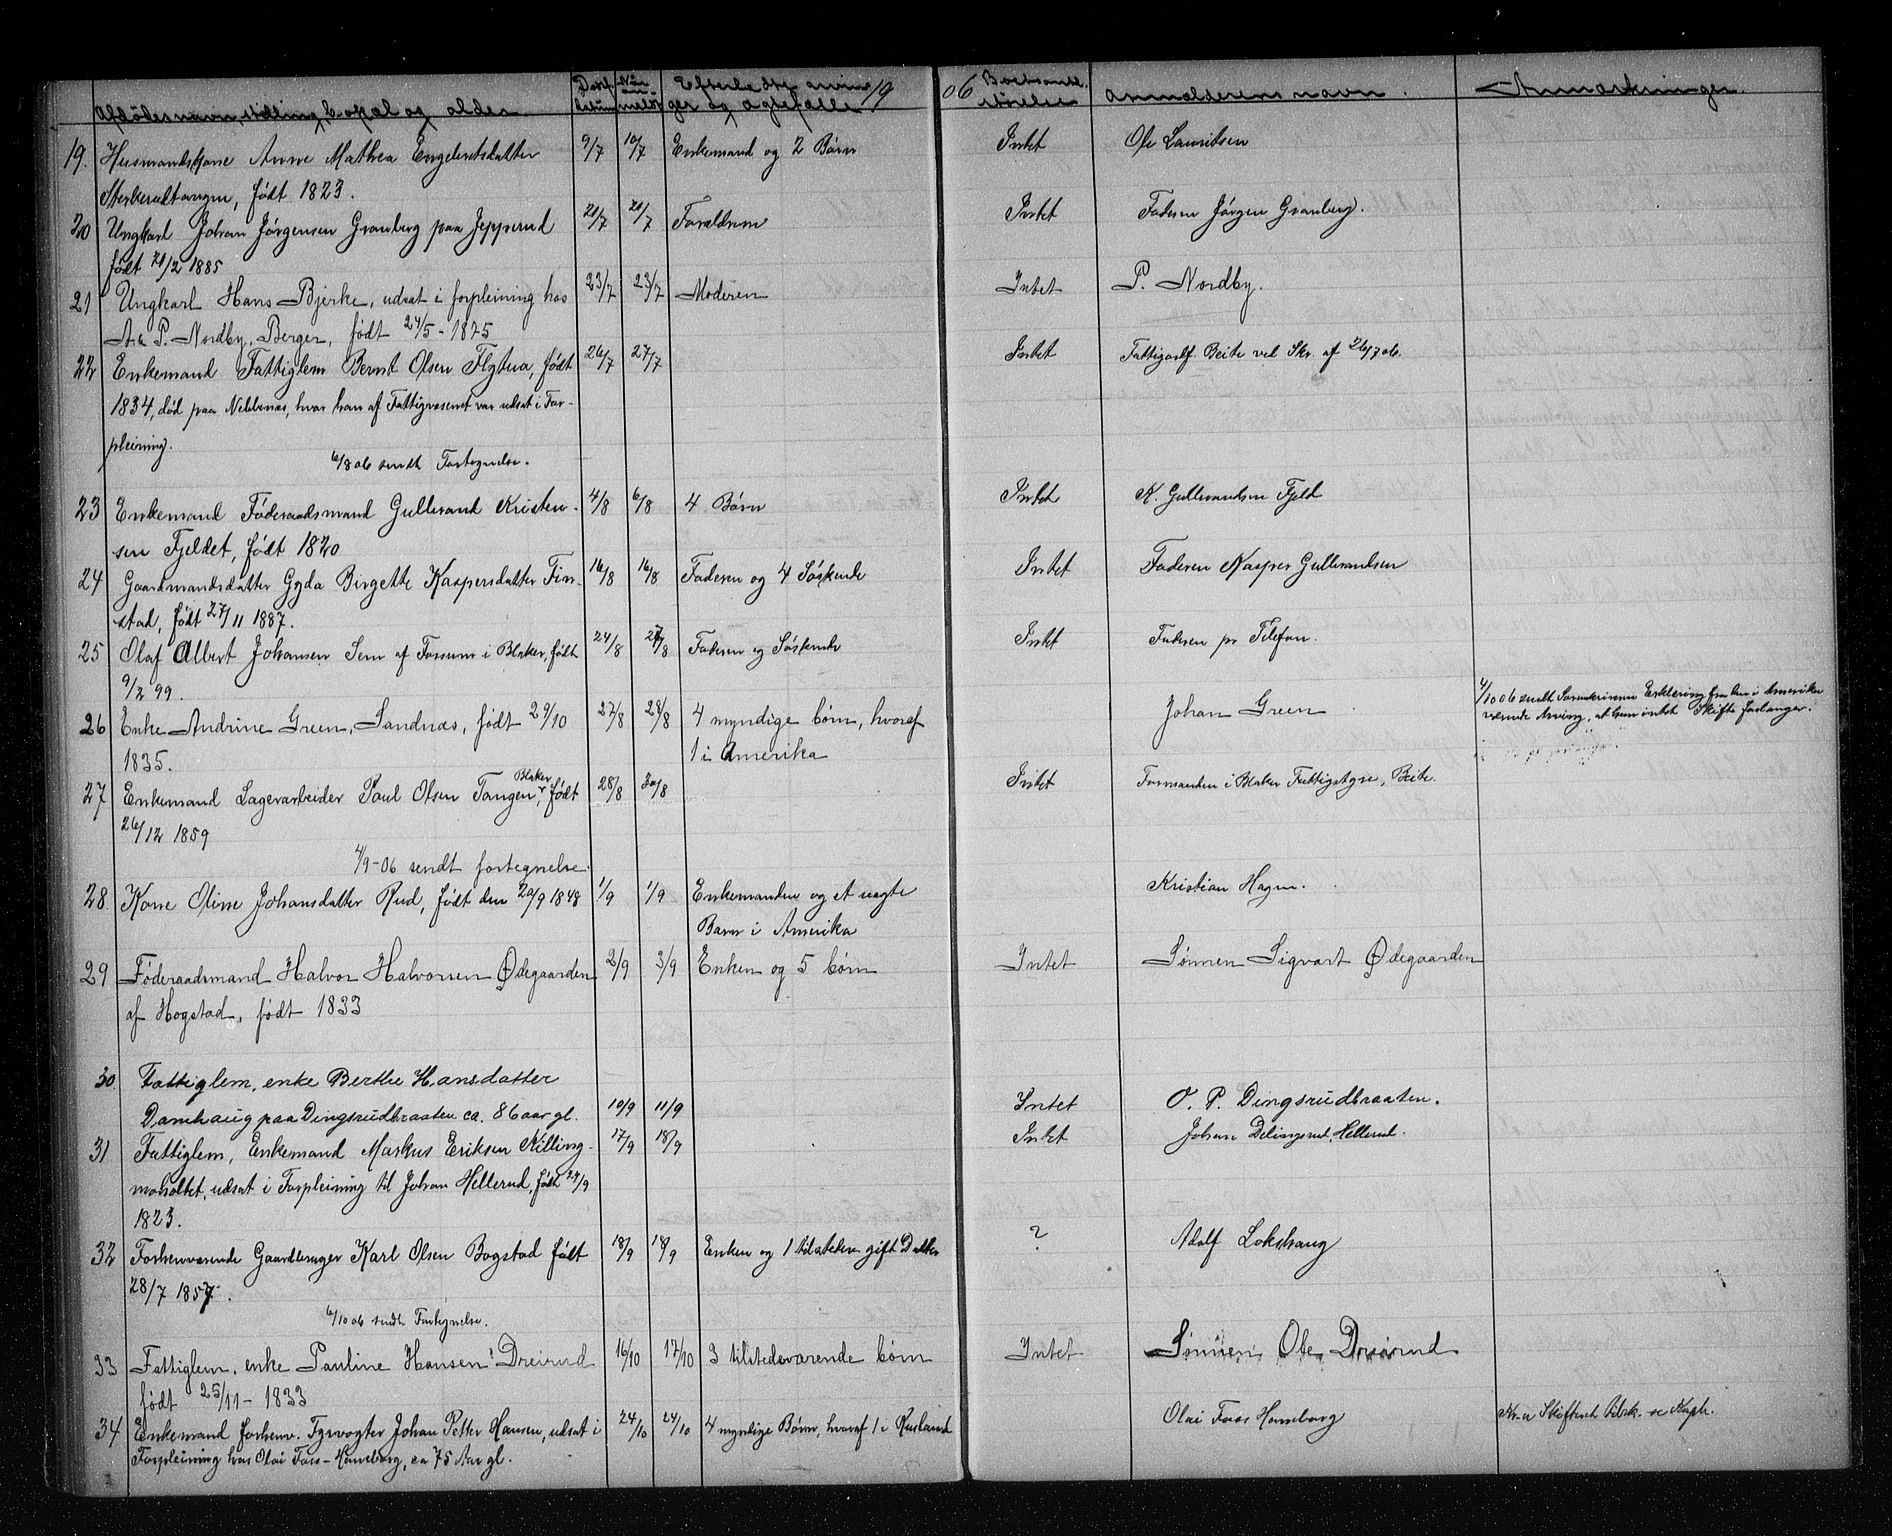 Afdødes navn, stilling, bopæl og alder. Dødsdatum Naar anmeldt Efterladte arvinger og ægtefælle 19 06 Boets ant. størrelse Anmelderens navn. Anmærkninger.
19. Husmandskone Anne Mathea Engebretsdatter 9/7 10/7 Enkemand og 2 Børn Intet Ole Lauritsen
Sterkerudtangen, født 1823.
20 Ungkarl Johan Jørgensen Granberg paa Jepperud 20/7 20/7 Forældrene Intet Faderen Jørgen Granberg.
født 21/2 1885
21 Ungkarl Hans Bjerke, udsat i forpleining hos 23/7 23/7 Moderen Intet P. Nordby.
A. P. Nordby, Berger, født 24/5 - 1875
22 Enkemand Fattiglem Bernt Olsen Flytua, født 26/7 27/7 Intet Fattigforst. Beite ved Skr. af 26/7 06.
1834, død paa Nebbenæs, hvor han af Fattigvæsenet var udsat i For-
pleining.
6/8 06 sendt Fortegnelse.
23 Enkemand Føderaadsmand Gulbrand Kristen- 4/8 6/8 4 Børn Intet K. Gulbrandsen Fjeld
sen Fjeldet, født 1820
24 Gaardmandsdatter Gyda Birgette Kaspersdatter Fin- 16/8 16/8 Faderen og 4 Søskende Intet Faderen Kasper Gulbrandsen
stad, født 27/11 1887.
25 Olaf Albert Johansen Sem af Fossum i Blaker, født 24/8 27/8 Faderen og Søskende Intet Faderen pr Telefon.
9/2 99.
26 Enke Andrine Green, Sandnæs, født 29/10 27/8 28/8 4 myndige børn, hvoraf Johan Green 4/10 06 sendt Sorenskriveren Erklæring fra den i Amerika
1835. 1 i Amerika værende Arving, at hun intet Skifte forlanger.
27 Enkemand Lagerarbeider Paul Olsen Tangen, Blaker, født 28/8 30/8 Intet Formanden i Blaker Fattigstyre, Beite.
26/12 1859
4/9-06 sendt fortegnelse.
28. Kone Oline Johansdatter Rud, født den 20/9 1848 1/9 1/9 Enkemanden og et uægte Kristian Hagen.
Barn i Amerika
29 Føderaadsmand Halvor Halvorsen Ødegaarden 2/9 3/9 Enken og 5 børn Intet Sønnen Sigvart Ødegaarden
af Hogstad, født 1833
30. Fattiglem, enke Berthe Hansdatter
Damhaug paa Dingsrudbraaten ca. 86 aar gl. 10/9 11/9 Intet O. P. Dingsrudbraaten.
31 Fattiglem, Enkemand Markus Eriksen Killing- 17/9 18/9 Intet Johan Delingsrud, Hellerud.
moholtet, udsat i Forpleining til Johan Hellerud, født 27/9
1823.
32 Forhenværende Gaardbruger Karl Olsen Bogstad født 18/9 18/9 Enken og 1 tilstedev. gift Datter ? Adolf Lokshaug
28/7 1857.
6/10 06 sendt Fortegnelse.
33 Fattiglem, enke Pauline Hansen Dreirud 16/10 17/10 3 tilstedeværende børn Intet Sønnen Ole Dreirud
født 25/11 - 1833
34 Enkemand forhenv. Fyrvogter Johan Petter Hansen, udsat i 24/10 24/10 4 myndige Børn, hvoraf 1 i Rusland Olai Foss Haneborg Kr.a Skifteret
Forpleining hos Olai Foss-Haneborg, ca 75 Aar gl.